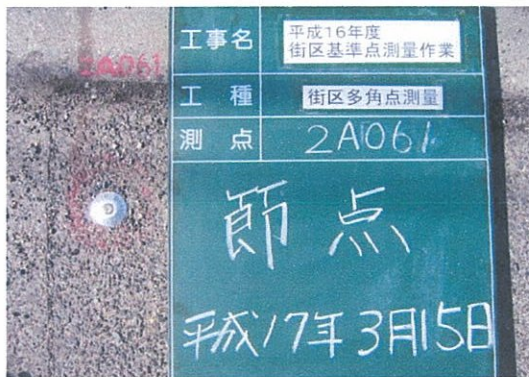 2A061
工事名 平成16年度
街区基準点測量作業
工種 街区多角点測量
測点 2A061
節点
平成17年3月15日